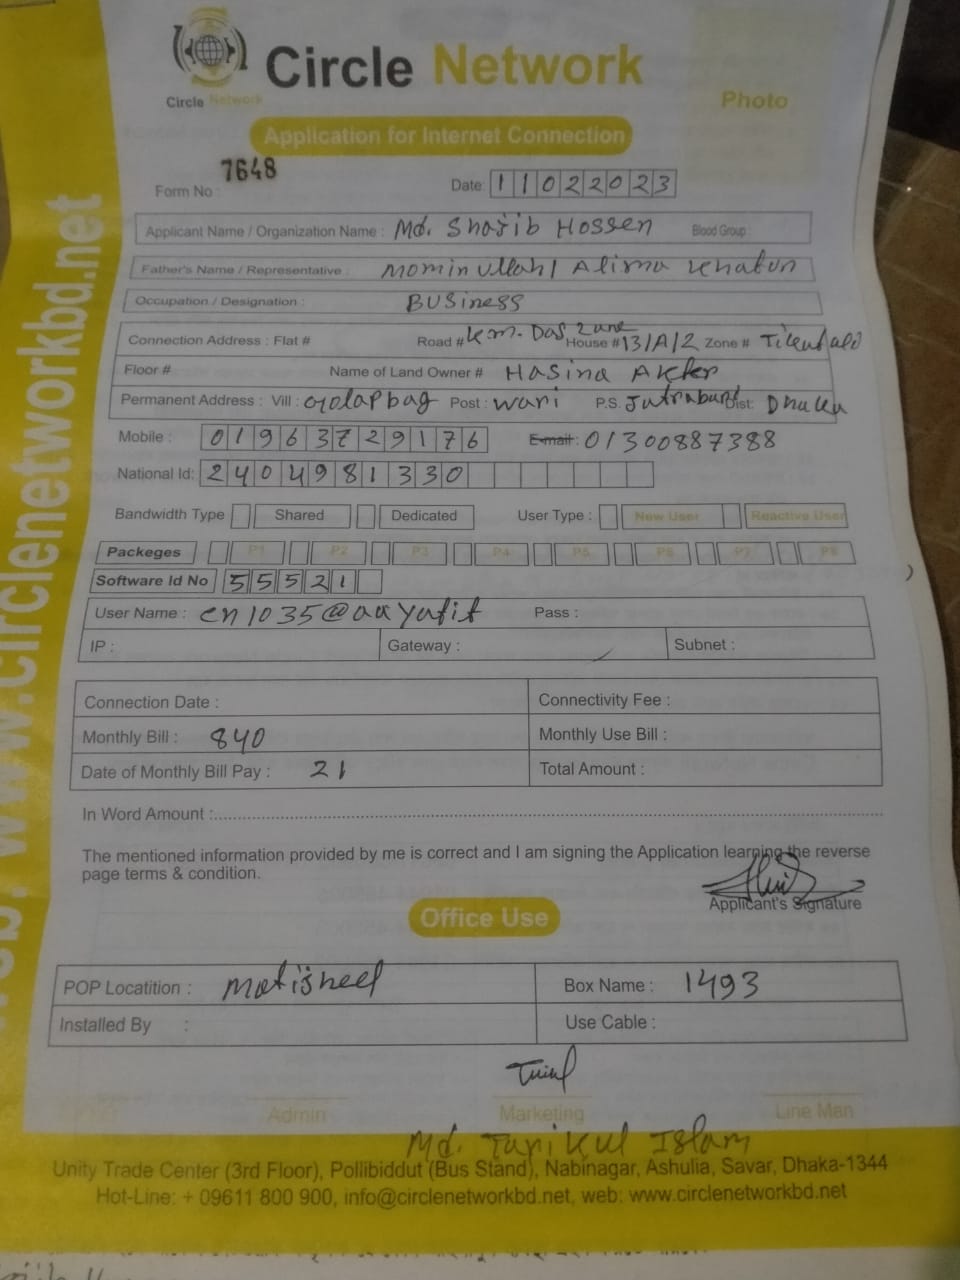 Circle Network
Circle Network
Photo
Application for Internet Connection
Form No : 7648
Date: 11022023
Applicant Name / Organization Name : Md. Shajib Hossen Blood Group :
Father's Name / Representative : Mominullah / Alima Khatun
Occupation / Designation : Business
Connection Address : Flat # Road # K.m. Das Lane House # 13/A/2 Zone # Tikatuli
Floor # Name of Land Owner # Hasina Akter
Permanent Address : Vill : Golapbag Post : Wari P.S. Jatrabari Dist: Dhaka
Mobile : 01963729176 E-mail : 01300887388
National Id: 2404981330
Bandwidth Type Shared Dedicated User Type : New User Reactive User
Packeges P1 P2 P3 P4 P5 P6 P7 P8
Software Id No 55521
User Name : cn1035@ Pass :
IP : Gateway : Subnet :
Connection Date : Connectivity Fee :
Monthly Bill : 840 Monthly Use Bill :
Date of Monthly Bill Pay : 21 Total Amount :
In Word Amount :
The mentioned information provided by me is correct and I am signing the Application learning the reverse
page terms & condition.
Applicant's Signature
Office Use
POP Locatition : Motijheel Box Name : 1493
Installed By : Use Cable :
Admin Marketing Line Man
Md. Tarikul Islam
Unity Trade Center (3rd Floor), Pollibiddut (Bus Stand), Nabinagar, Ashulia, Savar, Dhaka-1344
Hot-Line: + 09611 800 900, info@circlenetworkbd.net, web: www.circlenetworkbd.net
www.circlenetworkbd.net